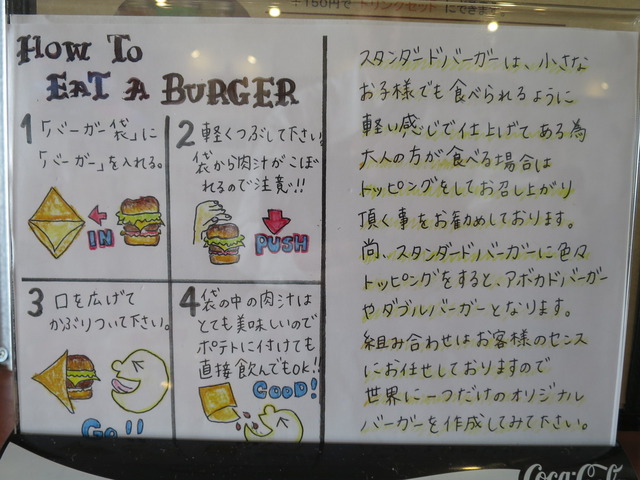 +150円で ドリンクセット にできます
HOW TO
EAT A BURGER
1 「バーガー袋」に
「バーガー」を入れる。
IN
2 軽くつぶして下さい。
袋から肉汁がこぼ
れるので注意!!
PUSH
3 口を広げて
かぶりついて下さい。
GO!!
4 袋の中の肉汁は
とても美味しいので
ポテトに付けても
直接飲んでもOK!!
GOOD!
スタンダードバーガーは、小さな
お子様でも食べられるように
軽い感じで仕上げてある為
大人の方が食べる場合は
トッピングをしてお召し上がり
頂く事をお勧めしております。
尚、スタンダードバーガーに色々
トッピングをすると、アボカドバーガー
やダブルバーガーとなります。
組み合わせはお客様のセンス
にお任せしておりますので
世界に一つだけのオリジナル
バーガーを作成してみて下さい。
Coca-Cola